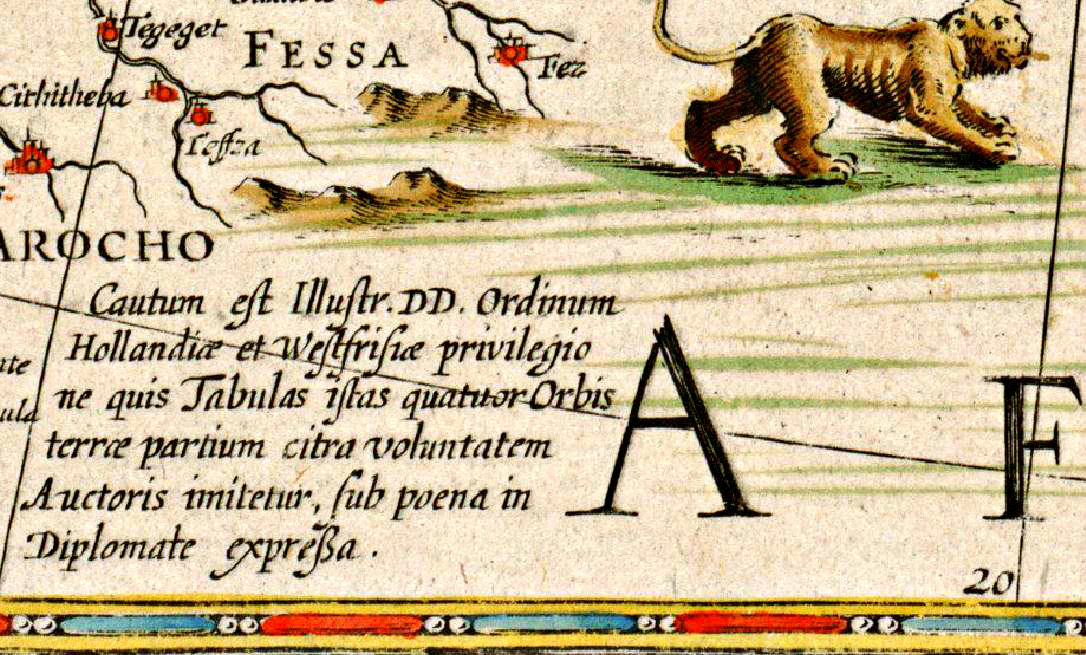 Tegeget
FESSA
Fez
Cithitheba
Teſſza
AROCHO
Cautum eſt Illuſtr. DD. Ordinum
Hollandiæ et Weſtfriſiæ privilegio
ne quis Tabulas iſtas quatuor Orbis
terræ partium citra voluntatem
Auctoris imitetur, ſub poena in
Diplomate expreßa.
A F
20